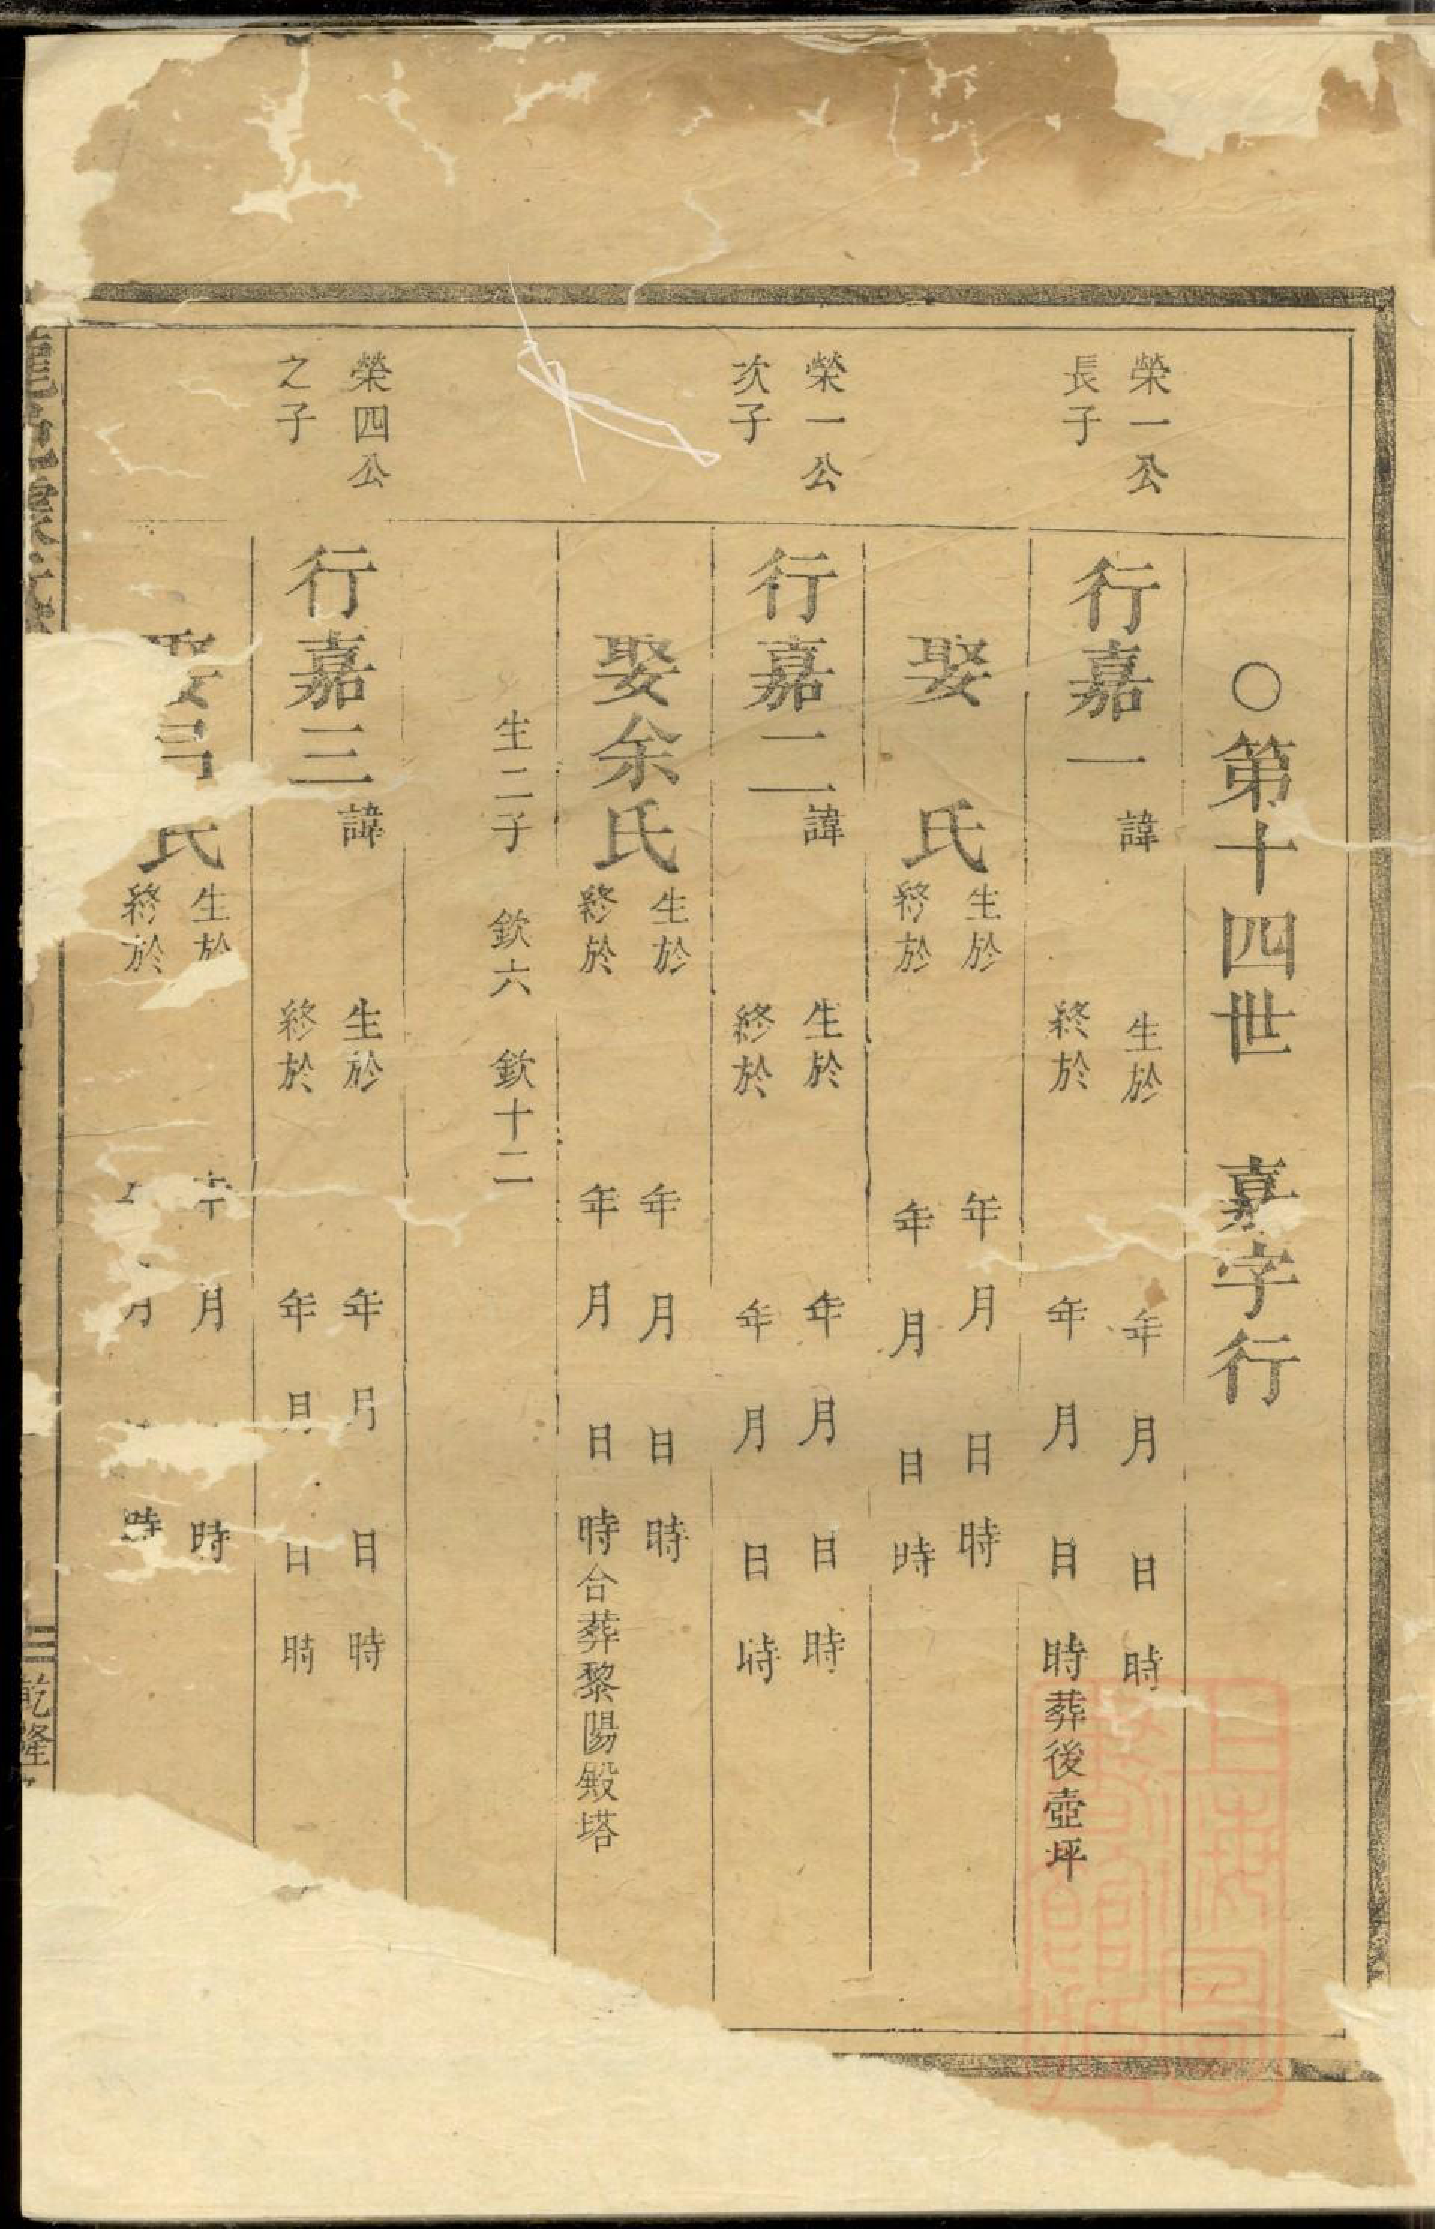 ○第十四世　嘉字行
榮一公
長子
行嘉一
諱　生於　年　月　日　時
終於　年　月　日　時葬後壺坪
娶　氏
生於　年　月　日　時
終於　年　月　日　時
榮一公
次子
行嘉二
諱　生於　年　月　日　時
終於　年　月　日　時
娶余氏
生於　年　月　日　時
終於　年　月　日　時合葬黎陽殿塔
生二子　欽六　欽十二
榮四公
之子
行嘉三
諱　生於　年　月　日　時
終於　年　月　日　時
娶　氏
生於　年　月　時
終於　月　時
乾隆
上海圖書館藏